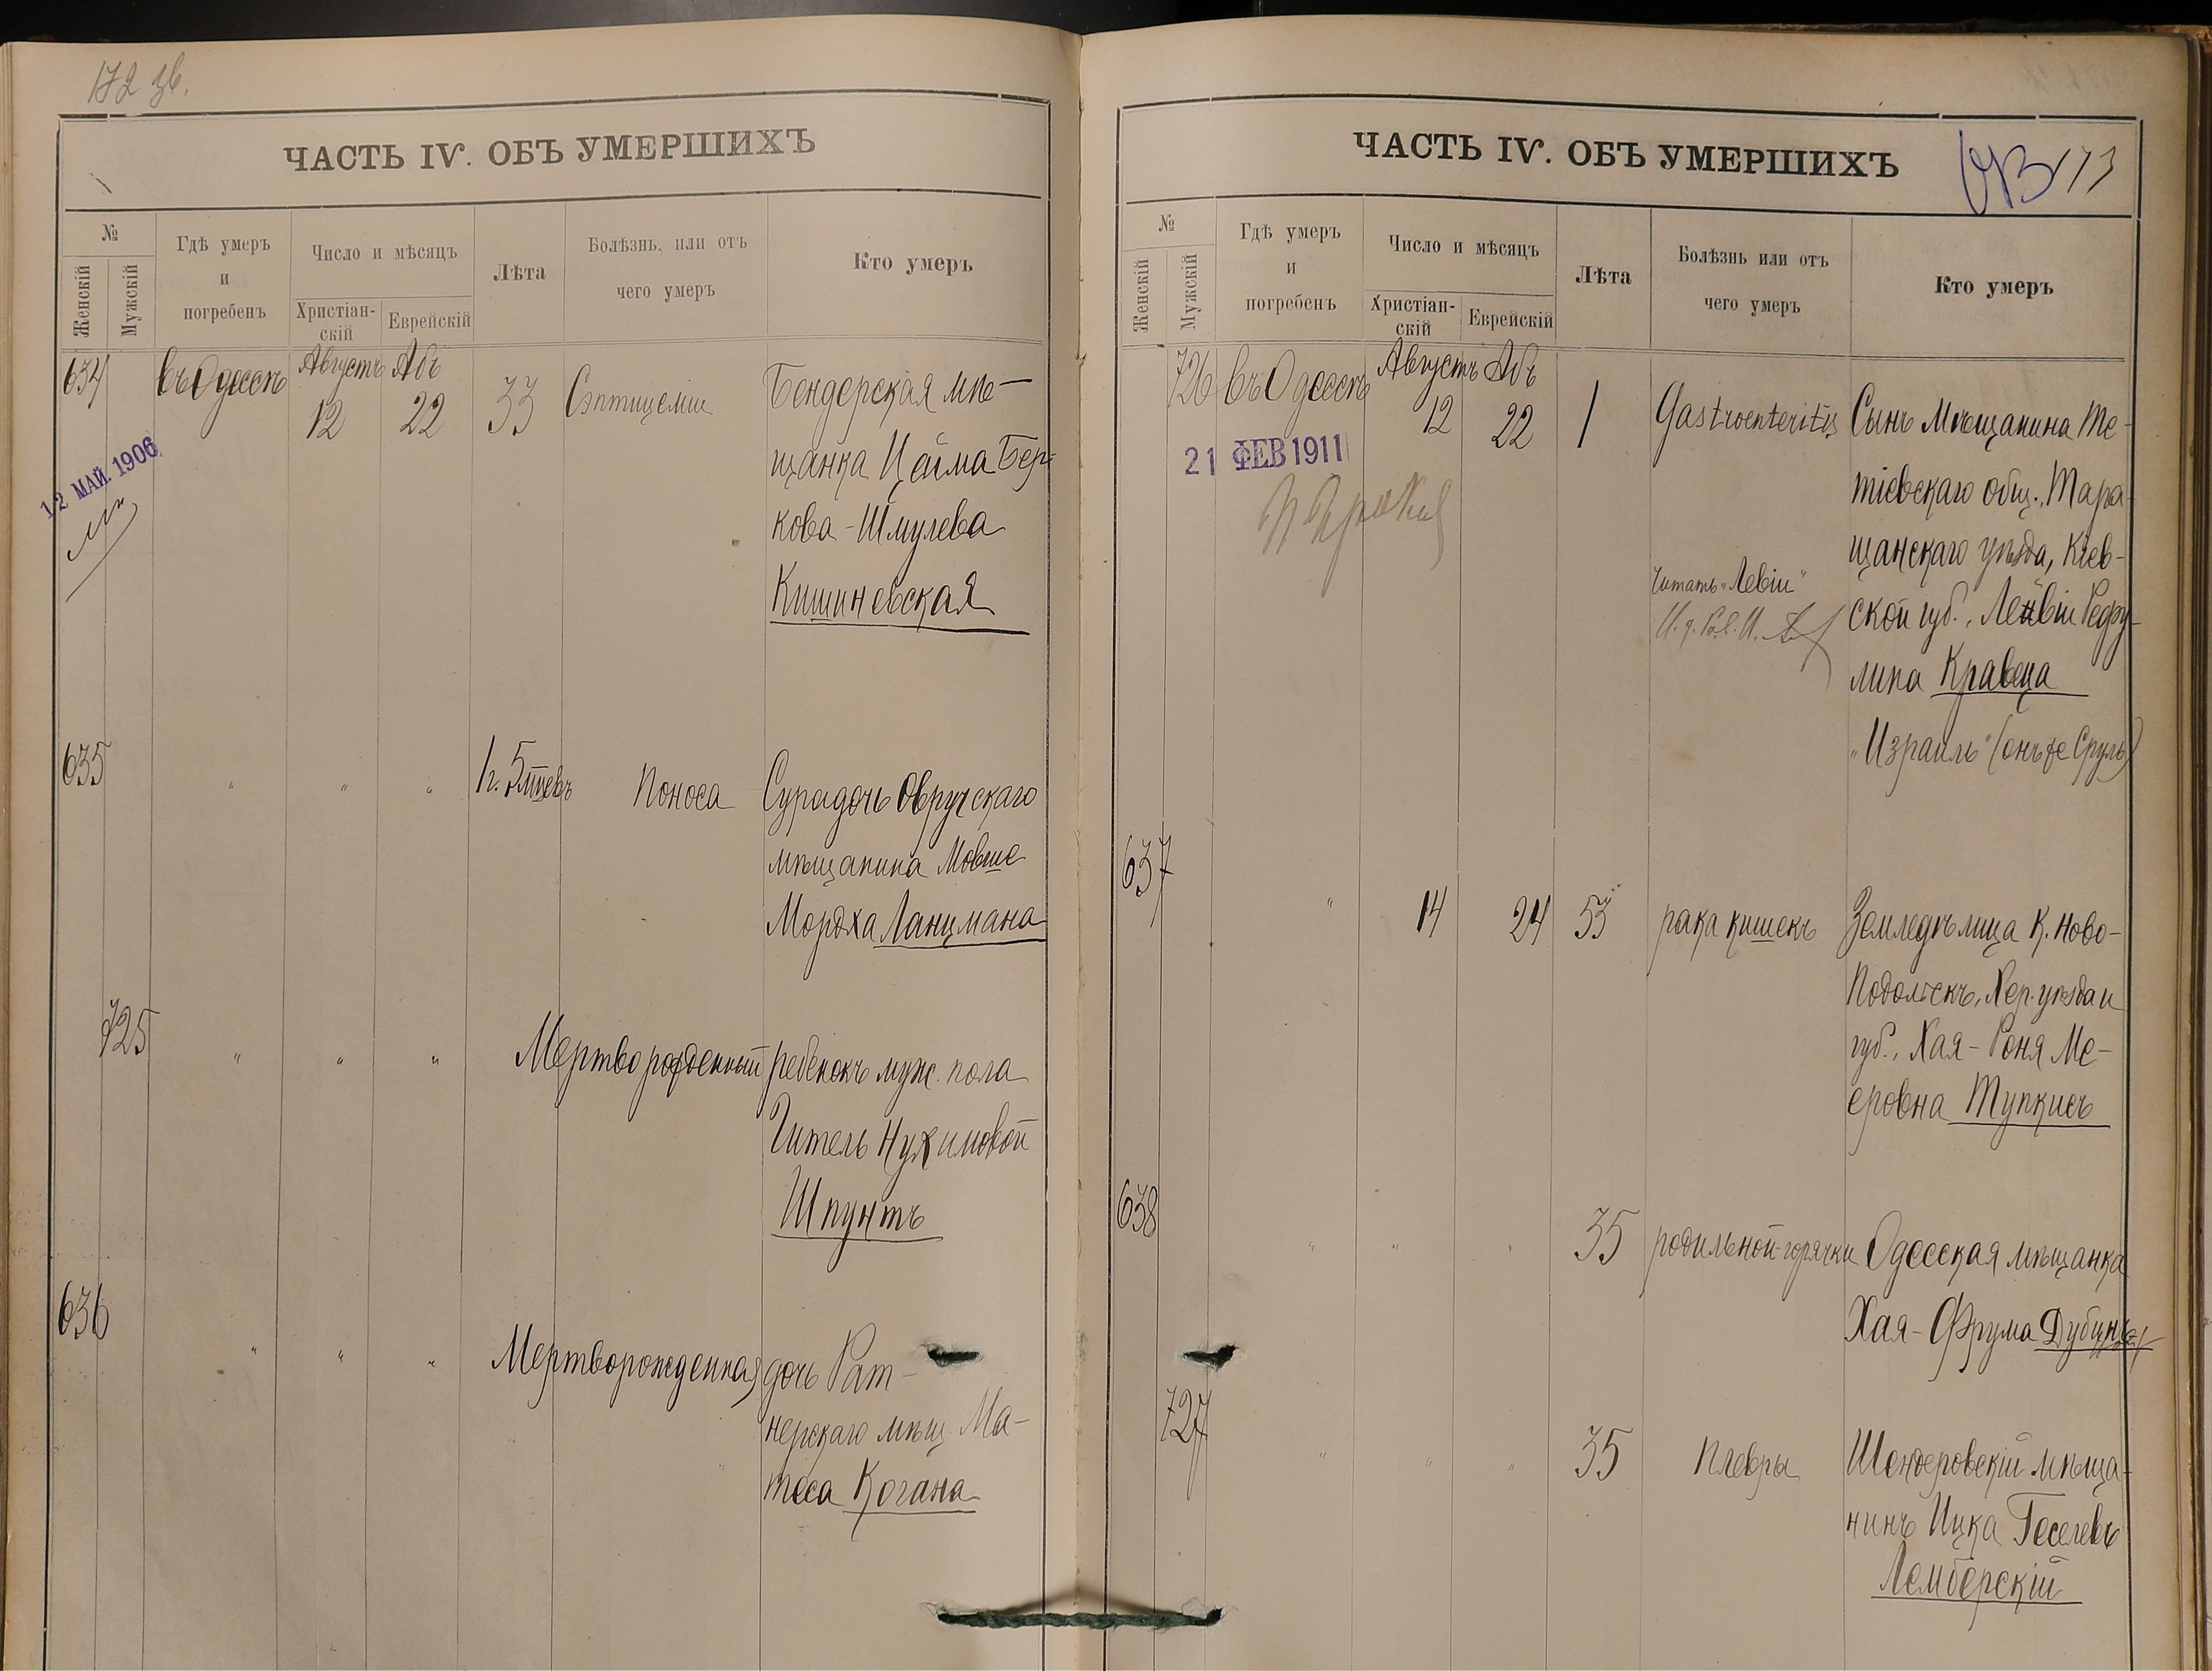 172 зв.
ЧАСТЬ IV. ОБЪ УМЕРШИХЪ
№
Женскій
Мужскій
Гдѣ умеръ
и
погребенъ
Число и мѣсяцъ
Христіан-
скій
Еврейскій
Лѣта
Болѣзнь, или отъ
чего умеръ
Кто умеръ
634 въ Одессѣ Августъ 12 Абъ 22 33 Сэптицеміи Бендерская мѣ-
щанка Цойма Бер-
кова-Шмулева
Кишиневская
12 МАЙ. 1906
635 " " " 1 г. 5 мцевъ Поноса Сура дочь Овручскаго
мѣщанина Мовше
Мордха Ланцмана
725 " " " Мертворожденный ребенокъ муж. пола
Гитель Нухимовой
Шпунтъ
636 " " " Мертворожденная дочь Рат-
нерскаго мѣщ. Ма-
теса Когана
ЧАСТЬ IV. ОБЪ УМЕРШИХЪ
173
№
Женскій
Мужскій
Гдѣ умеръ
и
погребенъ
Число и мѣсяцъ
Христіан-
скій
Еврейскій
Лѣта
Болѣзнь или отъ
чего умеръ
Кто умеръ
726 въ Одессѣ Августъ 12 Абъ 22 1 Gastroenteritis Сынъ Мѣщанина Те-
тіевскаго общ., Тара-
щанскаго уѣзда, Кіев-
ской губ., Лейвіи
лина Кравеца
"Израиль" (онъ же Сруль)
21 ФЕВ 1911
Читать "Левіи"
637 " 14 24 53 рака кишекъ Земледѣлица К. Ново-
Подольскъ, Хер. уѣзда и
губ., Хая-Роня Ме-
еровна Тупкисъ
638 " " " 35 родильной-горячки Одесская мѣщанка
Хая-Фрума
727 " " " 35 Плевры Шендеровскій мѣща-
нинъ Ицка Геселевъ
Лемберскій